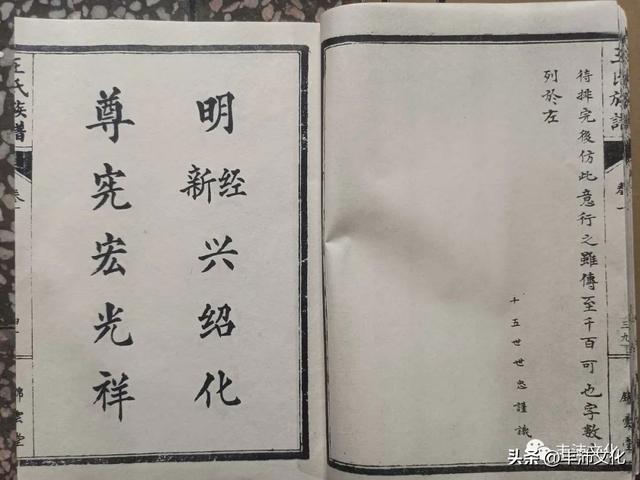 王氏族譜
卷一
三九
待排完後仿此意行之雖傳至千百可也字數
列於左
十五世世忠謹識
明经新兴绍化
尊宪宏光祥
王氏族譜
卷一
头条 @丰沛文化